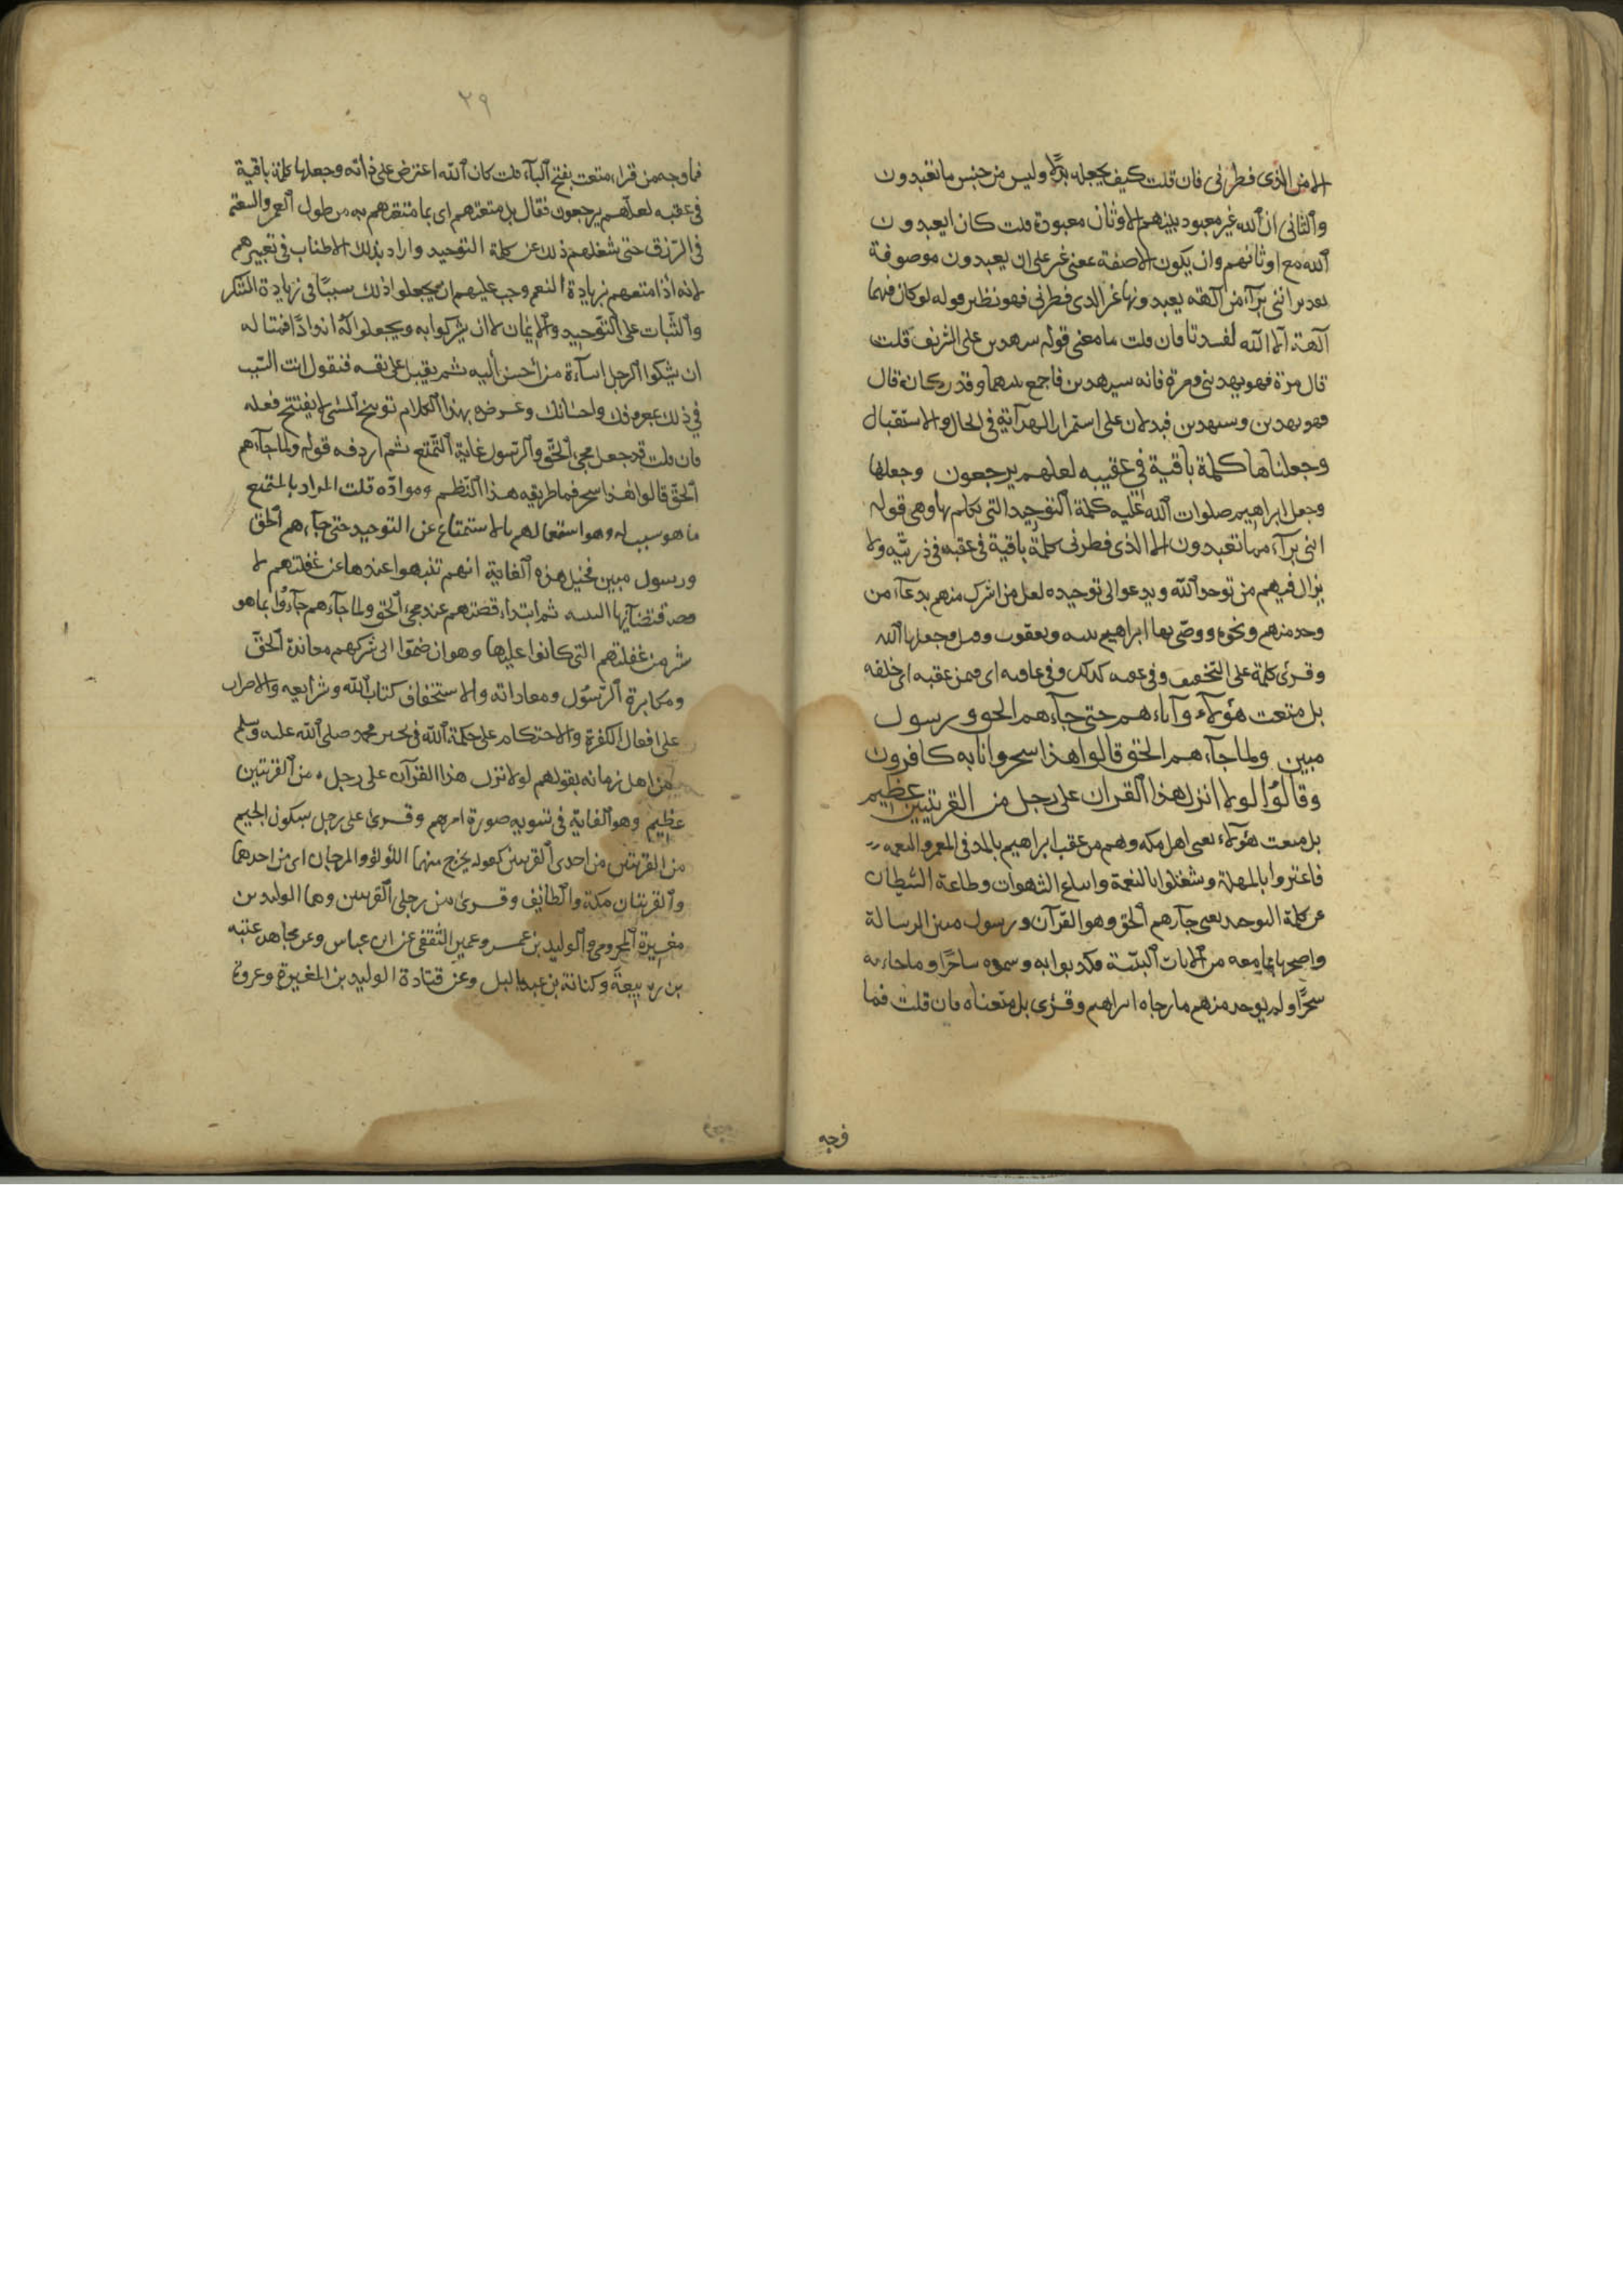 الا من الذي فطرني فان قلت كيف يجعله بدلا وليس من جنس ما تعبدون
والثاني ان الله غير معبود بينهم الاوثان معبودة قلت كان ايعبدون
الله مع اوثانهم وان يكون الا صفة بمعنى غير على ان يعبدون موصوفة
تقديره انني برآء من آلهة يعبدونها غير الذي فطرني فهو نظير قوله لو كان فيهما
آلهة الا الله لفسدتا فان قلت ما معنى قوله سيهدين على التسويف قلت
قال مرة فهو يهديني ومرة فانه سيهدين فاجمع بينهما وقدر كانه قال
فهو يهدين وسيهدين فيدلان على استمرار الهداية في الحال والاستقبال
وجعلناها كلمة باقية في عقبيه لعلهم يرجعون وجعلها
وجعل ابراهيم صلوات الله عليه كلمة التوحيد التي تكلم بها وهي قوله
انني برآء مما تعبدون الا الذي فطرني كلمة باقية في عقبه في ذريته ولا
يزال فيهم من توحد الله ويدعو الى توحيده لعل من اشرك منهم بدعاء من
وحد منهم ونحوه ووصى بها ابراهيم بنيه ويعقوب وقيل وجعلها الله
وقرئ كلمة على التخفيف وفي عقبه كذلك وفي عاقبه اي فمن عقبه اي خلفه
بل متعت هؤلاء وآباءهم حتى جآءهم الحق ورسول
مبين ولما جآءهم الحق قالوا هذا سحر وانا به كافرون
وقالوا لولا انزل هذا القران على رجل من القريتين عظيم
بل متعت هؤلاء يعني اهل مكه وهم من عقب ابراهيم بالمد في العمر والنعمه
فاغتروا بالمهلة وشغلوا بالنعمة واتباع الشهوات وطاعة الشيطان
عن كلمة التوحيد يعني جآءهم الحق وهو القرآن ورسول مبين الرسالة
واضحها بما معه من الايات البينة فكذبوا به وسموه ساحرا وما جاء به
سحرا ولم يوجد منهم ما رجاه ابراهيم وقرئ بل متعناه فان قلت فما
فجه
٢٩
فما وجه من قراء متعت بفتح التاء قلت كان الله اعترض على ذاته وجعلها كلمة باقية
في عقبه لعلهم يرجعون فقال بل متعتهم اي بما متعتهم به من طول العمر والسعة
في الرزق حتى شغلهم ذلك عن كلمة التوحيد واراد بذلك الاطناب في تعييرهم
لانه اذا متعهم بزيادة النعم وجب عليهم ان يجعلوا ذلك سببا في زيادة الشكر
والثبات على التوحيد والايمان لا ان يشركوا به ويجعلوا له اندادا فمثاله
ان يشكوا الرجل اسآءة من احسن اليه ثم يقبل على نفسه فيقول انت السبب
في ذلك بمعروفك واحسانك وغرضه بهذا الكلام توبيخ المسئ لا يفتتح فعله
فان قلت قد جعل مجئ الحق والرسول غاية التمتع ثم اردفه قوله ولما جآءهم
الحق قالوا هذا سحر فما طريقه هذا النظم ومواده قلت المراد بالتمتع
ما هو سبب له وهو استمتعالهم بالاستمتاع عن التوحيد حتى جآءهم الحق
ورسول مبين فخيل هذه الغاية انهم تنبهوا عندها عن غفلتهم لا
فصد قتضائها التنبه ثم ابتداء قصتهم عند مجئ الحق ولما جآءهم جآءوا بما هو
شر من غفلتهم التي كانوا عليها وهو ان ضموا الى شركهم معاندة الحق
ومكابرة الرسول ومعاداته والاستخفاف كتاب الله وشرايعه والاصرار
على افعال الكفرة والاحتكام على حكمة الله في تخير محمد صلى الله عليه وسلم
من اهل زمانه بقولهم لولا نزل هذا القرآن على رجل من القريتين
عظيم وهو الغاية في تسويه صورة امرهم وقرئ على رجل بسكون الجيم
من القريتين من احدى القريتين كقوله يخرج منهما اللؤلؤ والمرجان اي من احدهما
والقريتان مكة والطائف وقرئ من رجلي القريتين وهما الوليد بن
مغيرة المخزومي والوليد بن عمر وعمير الثقفي عن ابن عباس وعن مجاهد عتبه
بن ربيعة وكنانة بن عبد ياليل وعن قتادة الوليد بن المغيرة وعروة